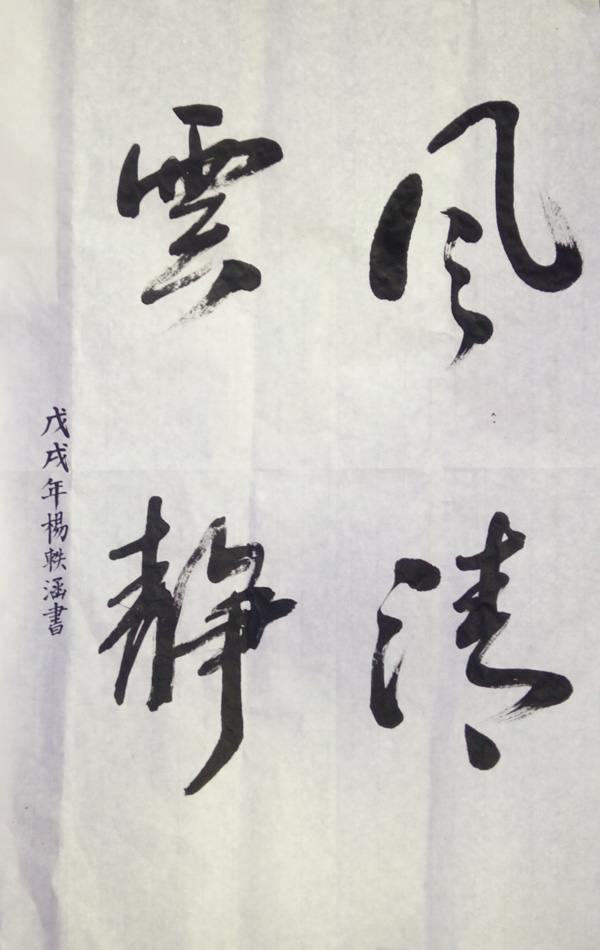 风清
雲静
戊戌年楊軼涵書